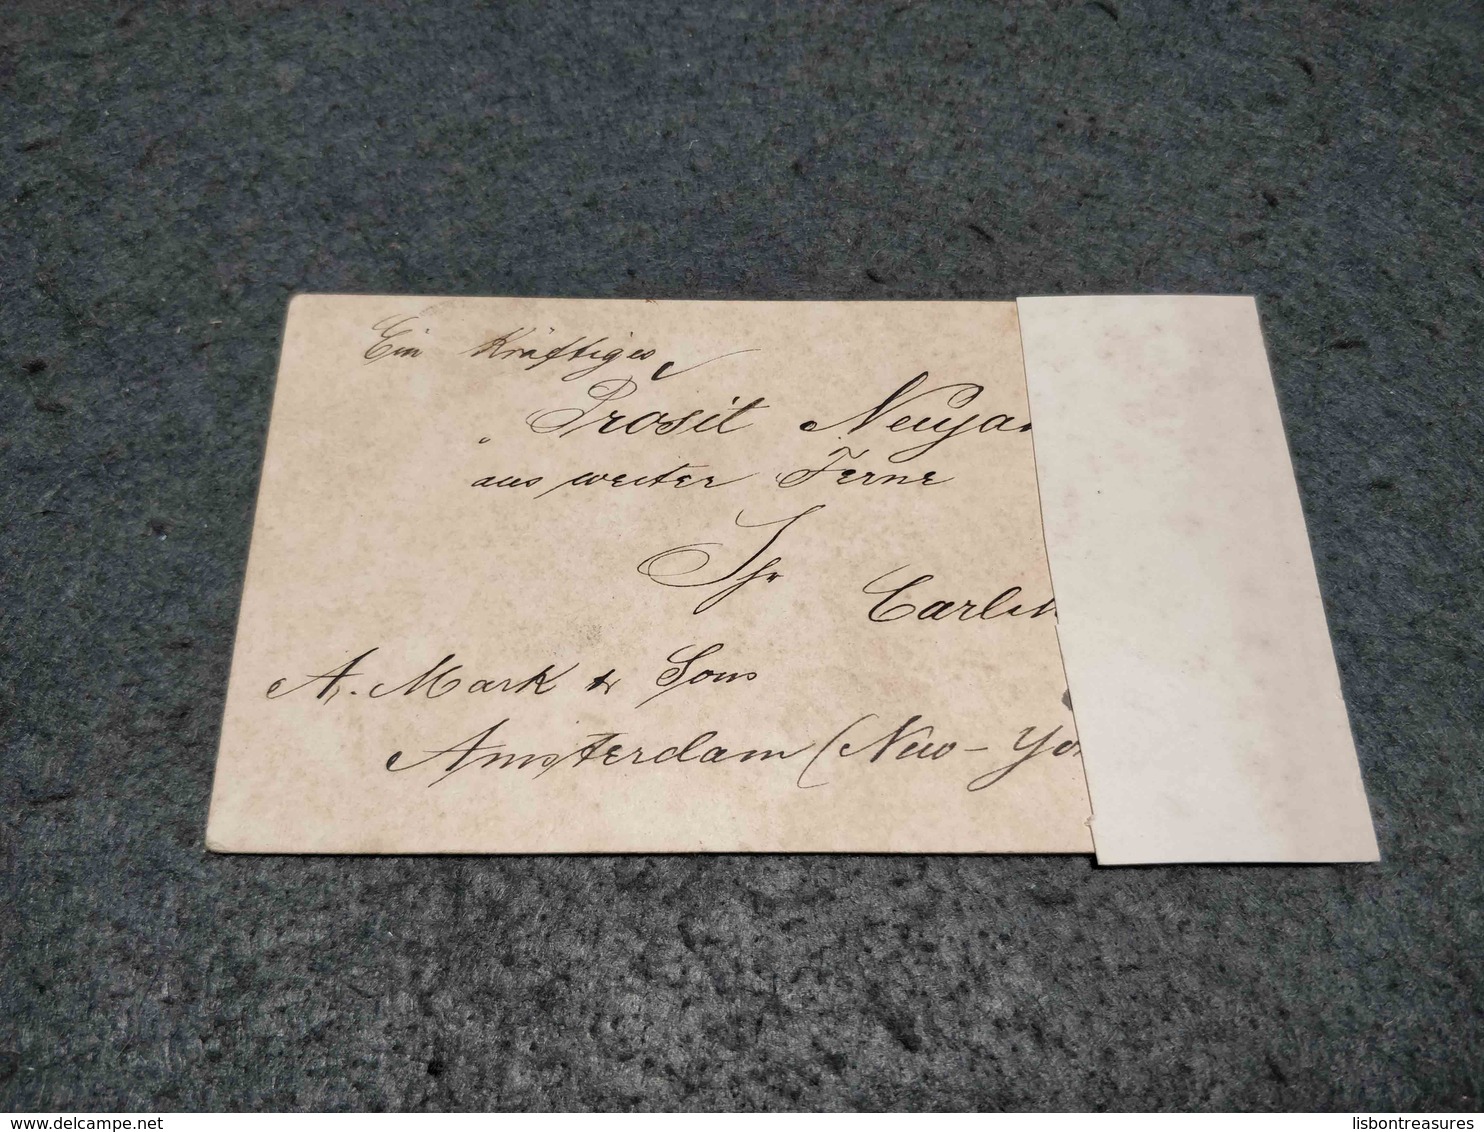 Ein Kräftiges
Prosit Neujah
aus weiter Ferne
Ihr
Carl
A. Mark & Sons
Amsterdam (New-Yor
delcampe.net
lisbontreasures